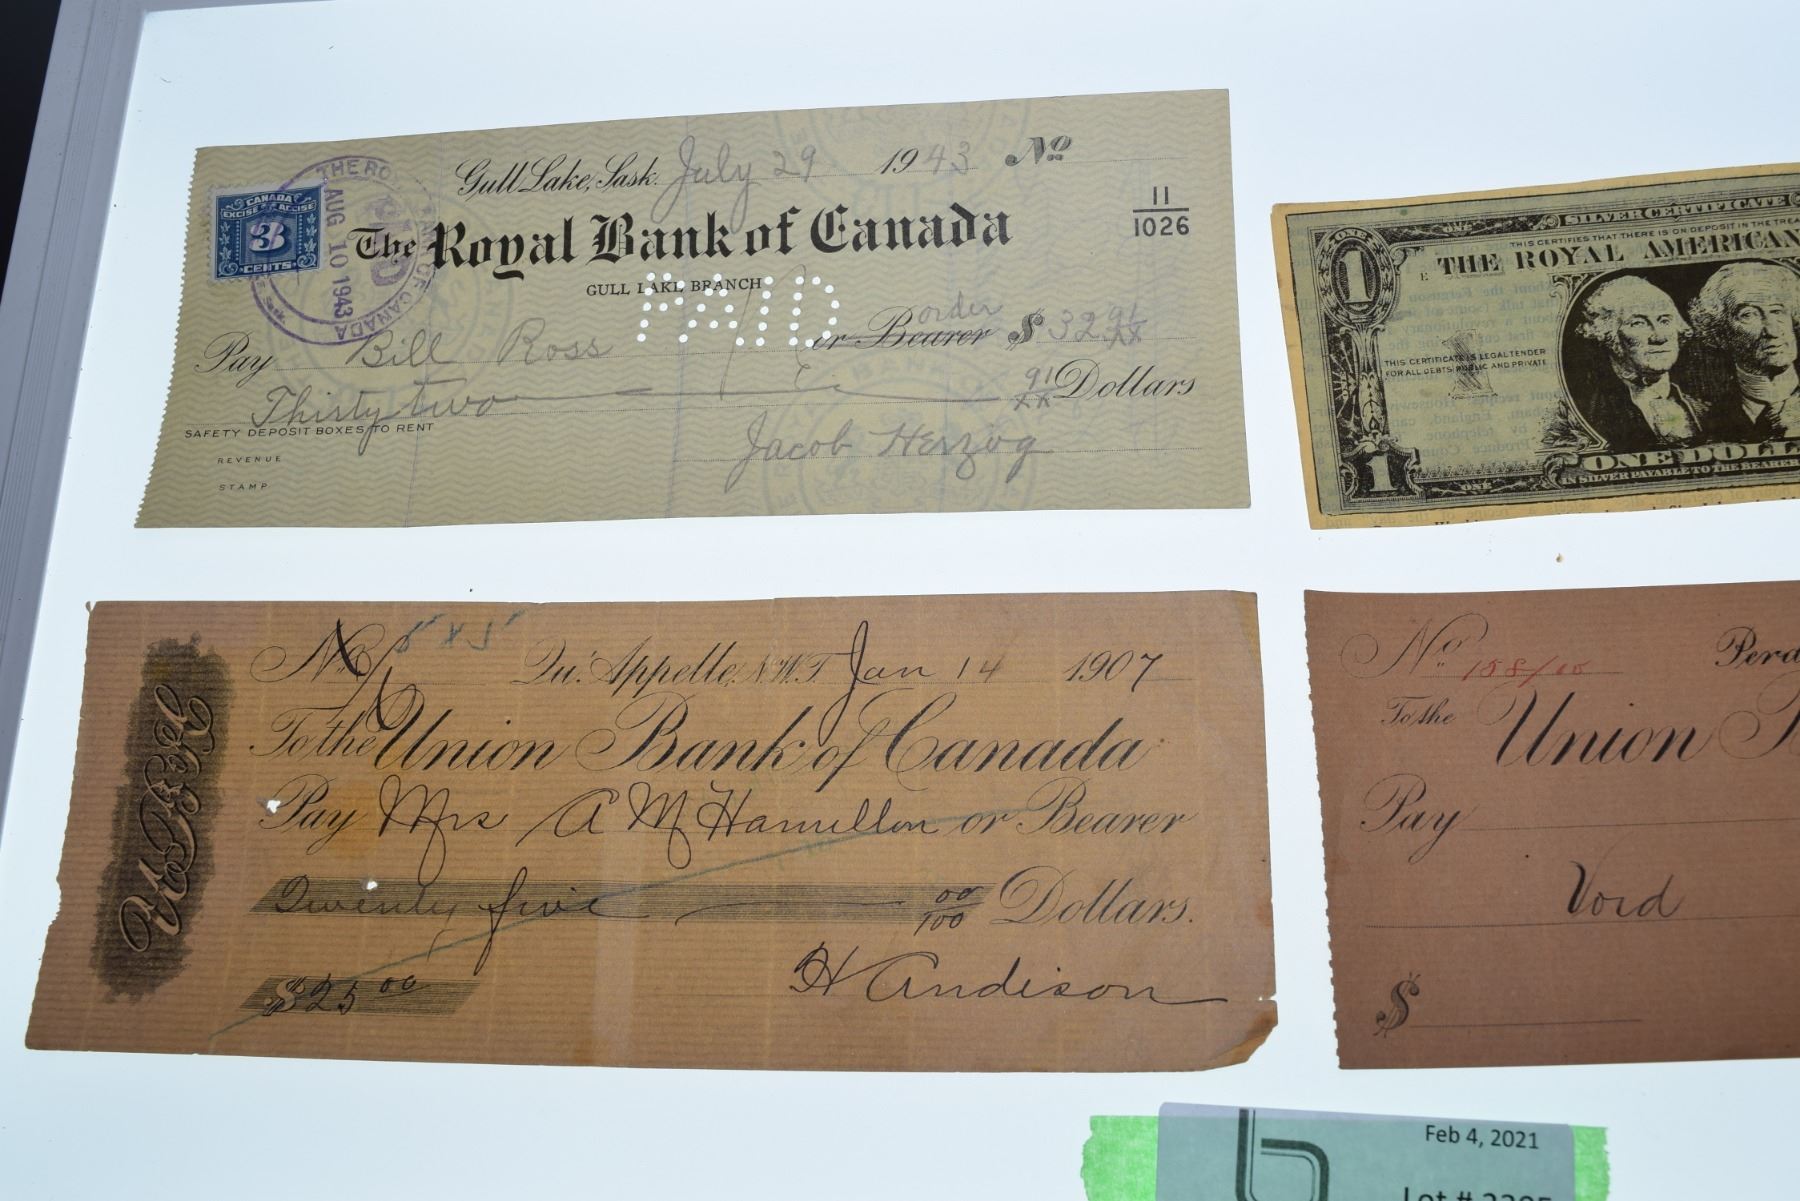 Gull Lake, Sask. July 29 1943 No
CANADA
EXCISE ACCISE
3
CENTS
THE RO
AUG 10 1943
OF CANADA
11
1026
The Royal Bank of Canada
GULL LAKE BRANCH
PAID
order
Pay Bill Ross or Bearer $ 32 91/XX
Thirty two 91/XX Dollars
SAFETY DEPOSIT BOXES TO RENT
REVENUE
STAMP
Jacob Herzog
ONE
SILVER CERTIFICATE
THIS CERTIFIES THAT THERE IS ON DEPOSIT IN THE TREA
1
E THE ROYAL AMERICAN
THIS CERTIFICATE IS LEGAL TENDER
FOR ALL DEBTS PUBLIC AND PRIVATE
1
ONE
ONE DOLL
IN SILVER PAYABLE TO THE BEARER
No
Qu'Appelle, N.W.T. Jan 14 1907
To the Union Bank of Canada
Pay Mrs A M Hamilton or Bearer
Twenty five 00/100 Dollars.
$25 00
H Andison
No 158/00 Perd
To the Union
Pay
Void
$
Feb 4, 2021
Lot #